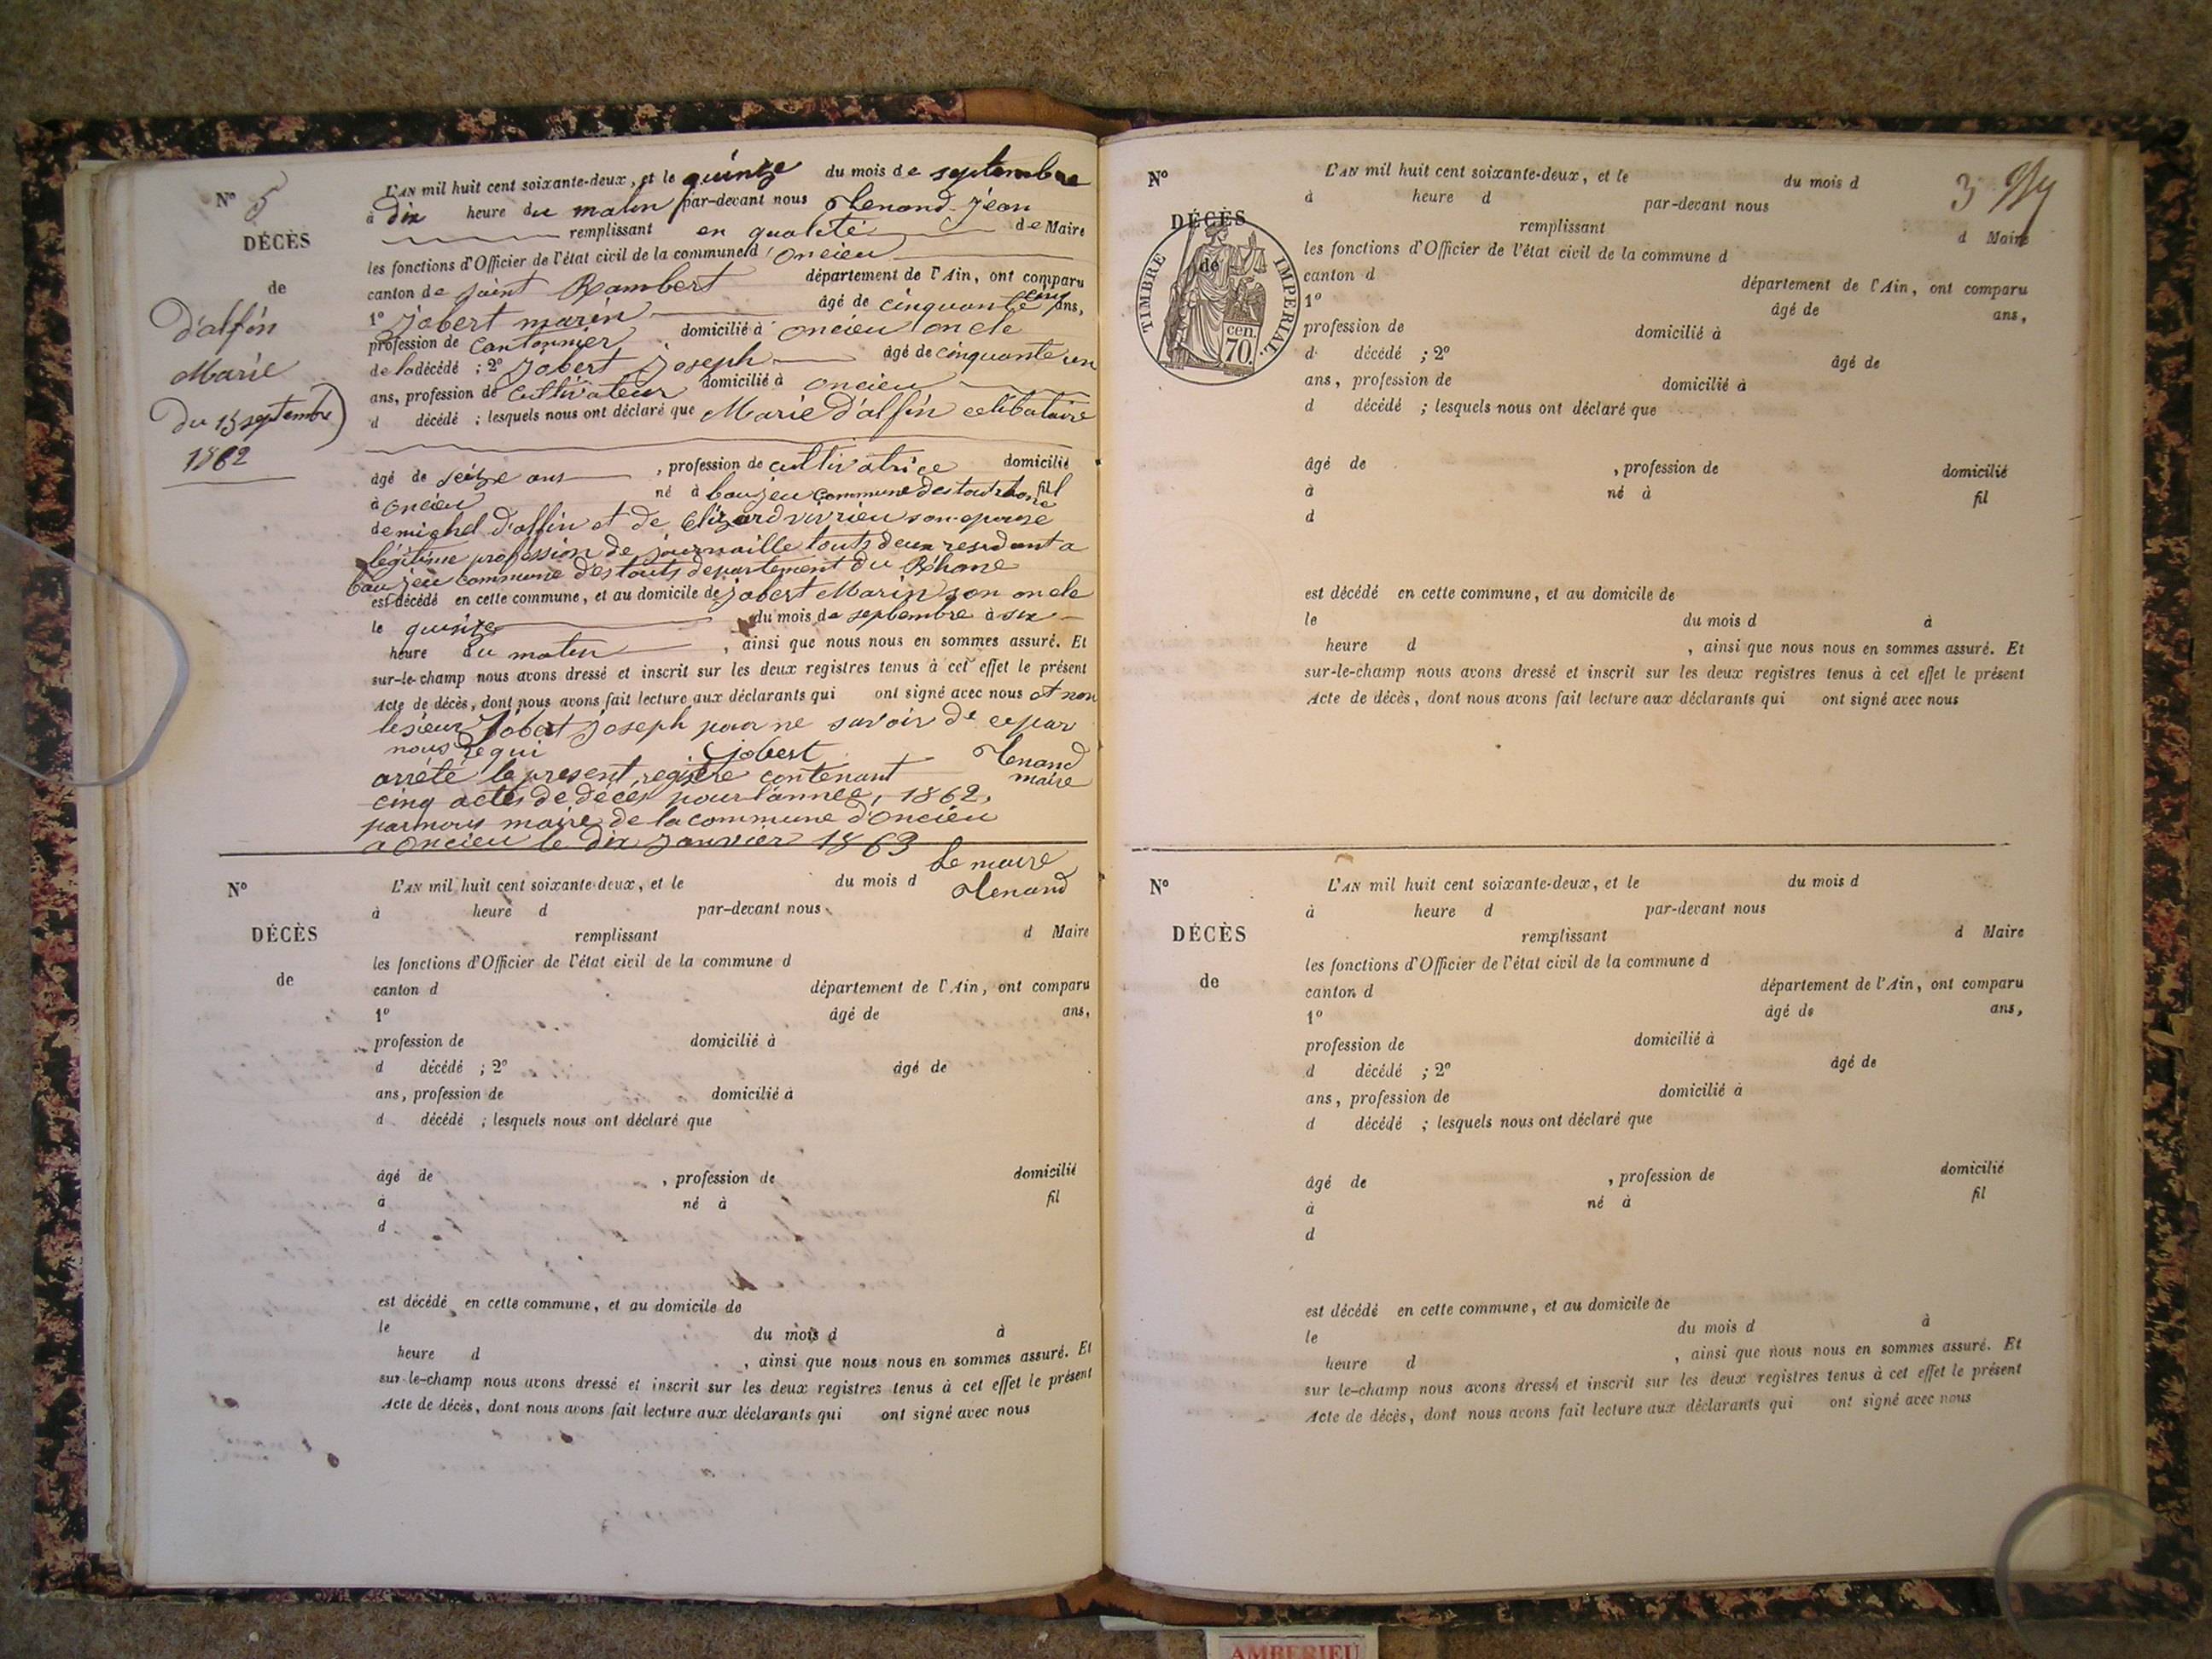 N° 5
DÉCÈS
de
D'alfin
Marie
Du 15 septembre
1862
L'AN mil huit cent soixante-deux, et le quinze du mois de septembre
à dix heure du matin par-devant nous Jean
remplissant en qualité de Maire
les fonctions d'Officier de l'état civil de la commune d'oncieu
canton de saint Rambert département de l'Ain, ont comparu
1° Jobert marin âgé de cinquante cinq ans,
profession de Cantonnier domicilié à oncieu oncle
de la décédé ; 2° Jobert Joseph âgé de cinquante un
ans, profession de Cultivateur domicilié à oncieu
d décédé ; lesquels nous ont déclaré que Marie D'alfin celibataire
âgé de seize ans, profession de cultivatrice domicilié
à oncieu né à baujeu commune des fil
de michel D'alfin et de son epouse
légitime profession de touts deux residant a
baujeu commune des touts departement du Rhone
est décédé en cette commune, et au domicile de Jobert Marin son oncle
le quinze du mois de septembre à six
heure du matin, ainsi que nous nous en sommes assuré. Et
sur-le-champ nous avons dressé et inscrit sur les deux registres tenus à cet effet le présent
Acte de décès, dont nous avons fait lecture aux déclarants qui ont signé avec nous et non
le sieur Jobert Joseph pour ne savoir de ce par
nous requi
Jobert
maire
arrété le present registre contenant
cinq actes de décés pour l'année, 1862,
par nous maire de la commune d'Oncieu
a Oncieu le dix Janvier 1863
Le maire
N°
DÉCÈS
de
L'AN mil huit cent soixante-deux, et le du mois d
à heure d par-devant nous
remplissant d Maire
les fonctions d'Officier de l'état civil de la commune d
canton d département de l'Ain, ont comparu
1° âgé de ans,
profession de domicilié à
d décédé ; 2° âgé de
ans, profession de domicilié à
d décédé ; lesquels nous ont déclaré que
âgé de , profession de domicilié
à né à fil
d
est décédé en cette commune, et au domicile de
le du mois d à
heure d , ainsi que nous nous en sommes assuré. Et
sur-le-champ nous avons dressé et inscrit sur les deux registres tenus à cet effet le présent
Acte de décès, dont nous avons fait lecture aux déclarants qui ont signé avec nous
3
N°
DÉCÈS
de
TIMBRE IMPERIAL.
cen.
70.
L'AN mil huit cent soixante-deux, et le du mois d
à heure d par-devant nous
remplissant d Maire
les fonctions d'Officier de l'état civil de la commune d
canton d département de l'Ain, ont comparu
1° âgé de ans,
profession de domicilié à
d décédé ; 2° âgé de
ans, profession de domicilié à
d décédé ; lesquels nous ont déclaré que
âgé de , profession de domicilié
à né à fil
d
est décédé en cette commune, et au domicile de
le du mois d à
heure d , ainsi que nous nous en sommes assuré. Et
sur-le-champ nous avons dressé et inscrit sur les deux registres tenus à cet effet le présent
Acte de décès, dont nous avons fait lecture aux déclarants qui ont signé avec nous
N°
DÉCÈS
de
L'AN mil huit cent soixante-deux, et le du mois d
à heure d par-devant nous
remplissant d Maire
les fonctions d'Officier de l'état civil de la commune d
canton d département de l'Ain, ont comparu
1° âgé de ans,
profession de domicilié à
d décédé ; 2° âgé de
ans, profession de domicilié à
d décédé ; lesquels nous ont déclaré que
âgé de , profession de domicilié
à né à fil
d
est décédé en cette commune, et au domicile de
le du mois d à
heure d , ainsi que nous nous en sommes assuré. Et
sur le-champ nous avons dressé et inscrit sur les deux registres tenus à cet effet le présent
Acte de décès, dont nous avons fait lecture aux déclarants qui ont signé avec nous
AMBERIEU